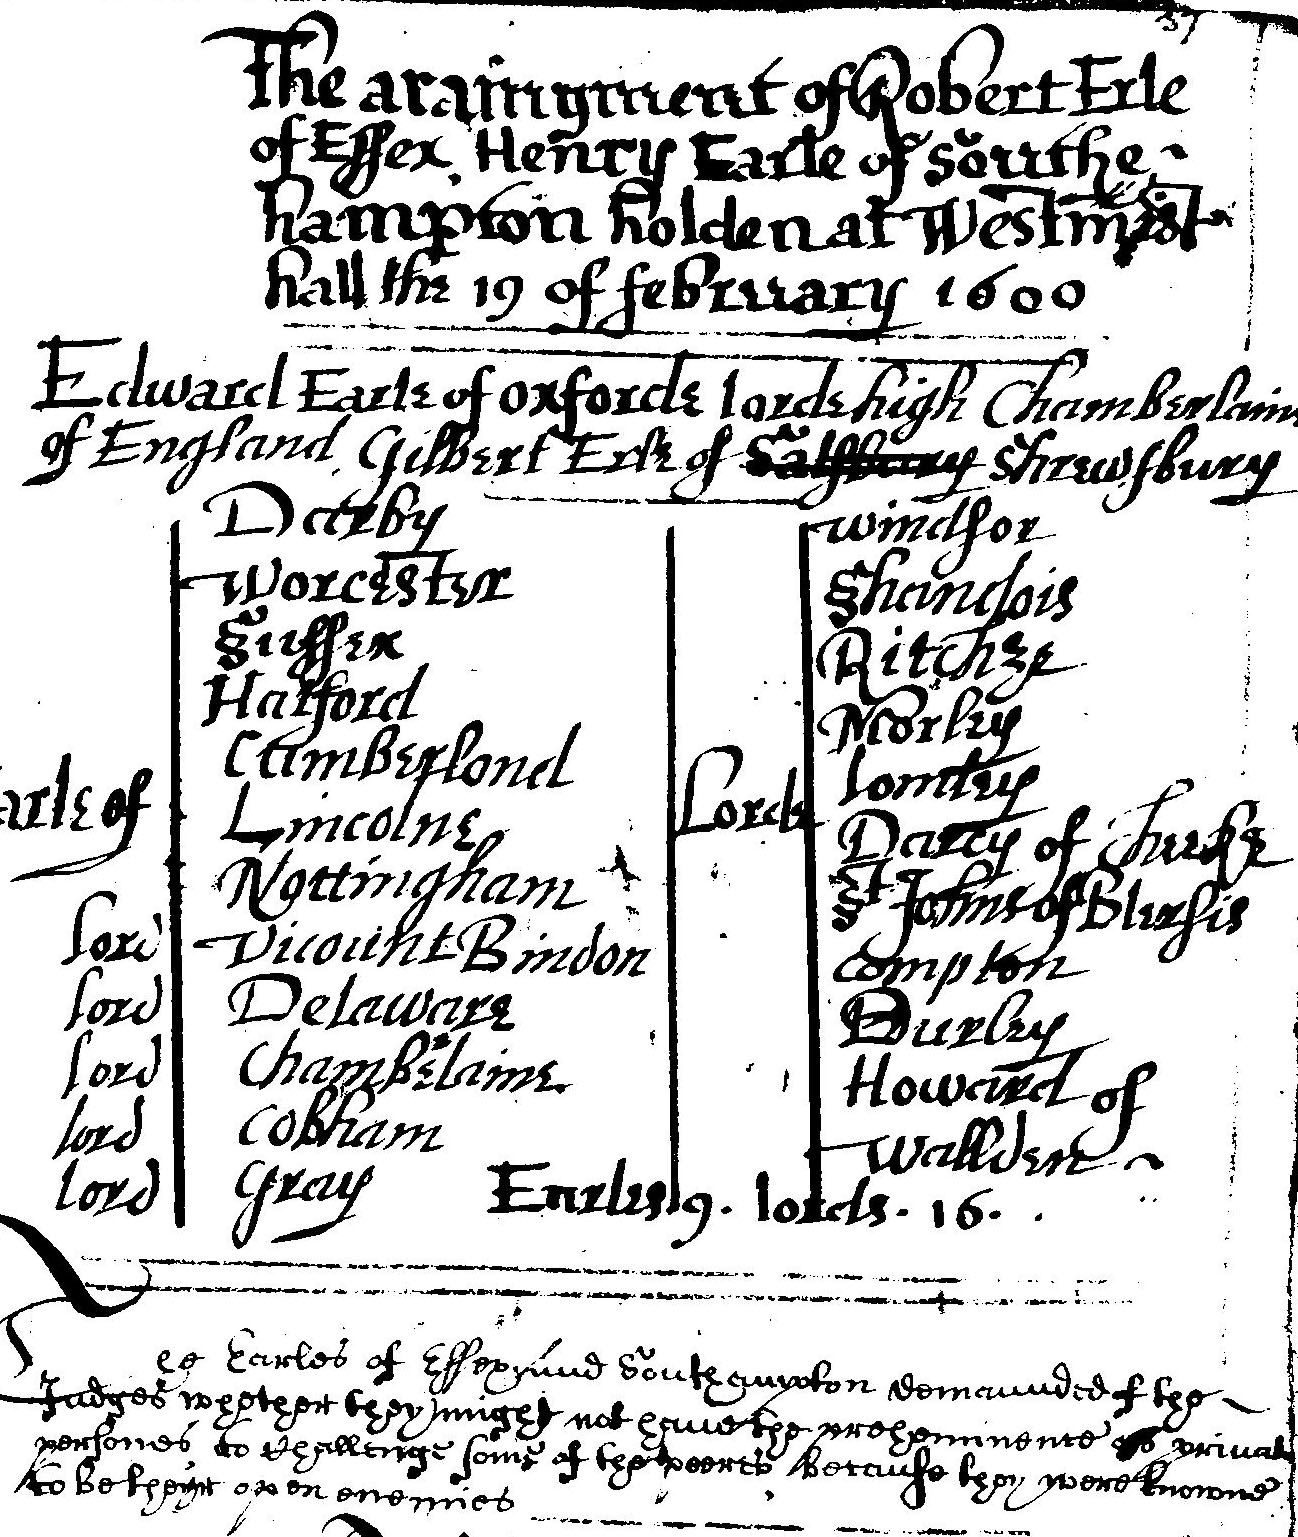 37
The araingment of Robert Erle
of Essex, Henry Earle of Southe
hampton holden at Westminst
hall the 19 of february 1600
Edward Earle of oxforde lorde high Chamberlain
of England, Gilbert Erle of Salsbury Shrewsbury
Darby
Worcester
Sussex
Harford
Cumberlond
arle of
Lincolne
Nottingham
lord Vicount Bindon
lord Delaware
lord Chambelaine
lord Cobham
lord Gray
Lorde
windsor
Shandois
Ritche
Morley
lomley
Darcy of
St Johns of
Compton
Burley
Howard of
Wallden
Earles 9. lords. 16.
ee Earles of Essex and Southampton demaunded of the
Judges whether they might not have the preheminence as privat
persones to Challenge some of the peeres because they were knowne
to be theyr open enemies